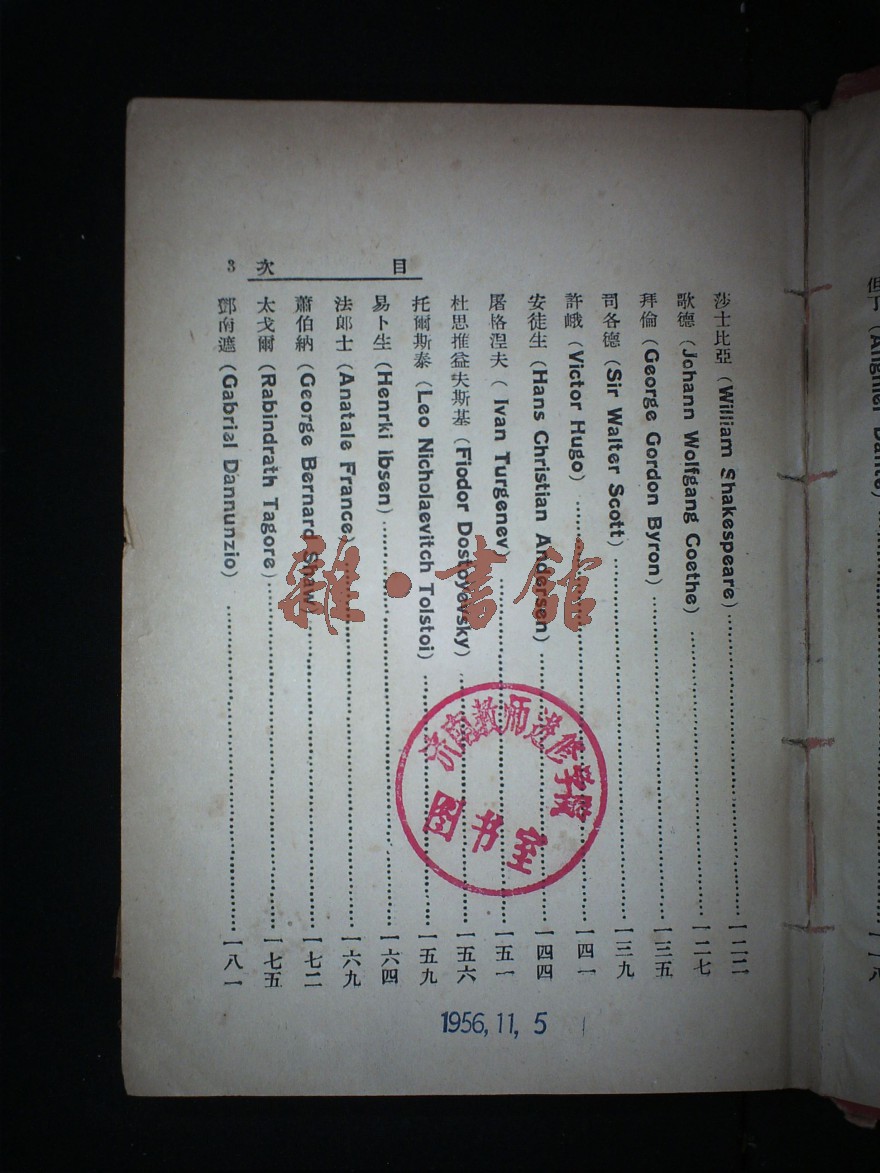 目 次 3
莎士比亞 (William Shakespeare) 一二二
歌德 (Johann Wolfgang Coethe) 一二七
拜倫 (George Gordon Byron) 一三五
司各德 (Sir Walter Scott) 一三九
許峨 (Victor Hugo) 一四一
安徒生 (Hans Christian Andersen) 一四四
屠格涅夫 (Ivan Turgenev) 一五一
杜思推益夫斯基 (Fiodor Dostoyevsky) 一五六
托爾斯泰 (Leo Nicholaevitch Tolstoi) 一五九
易卜生 (Henrki Ibsen) 一六四
法郎士 (Anatale France) 一六九
蕭伯納 (George Bernard Shaw) 一七二
太戈爾 (Rabindrath Tagore) 一七五
鄧南遮 (Gabrial Dannunzio) 一八一
雜·書館
济南教师进修学院
图书室
1956,11,5
但丁 (Anghier Dante) 一一八